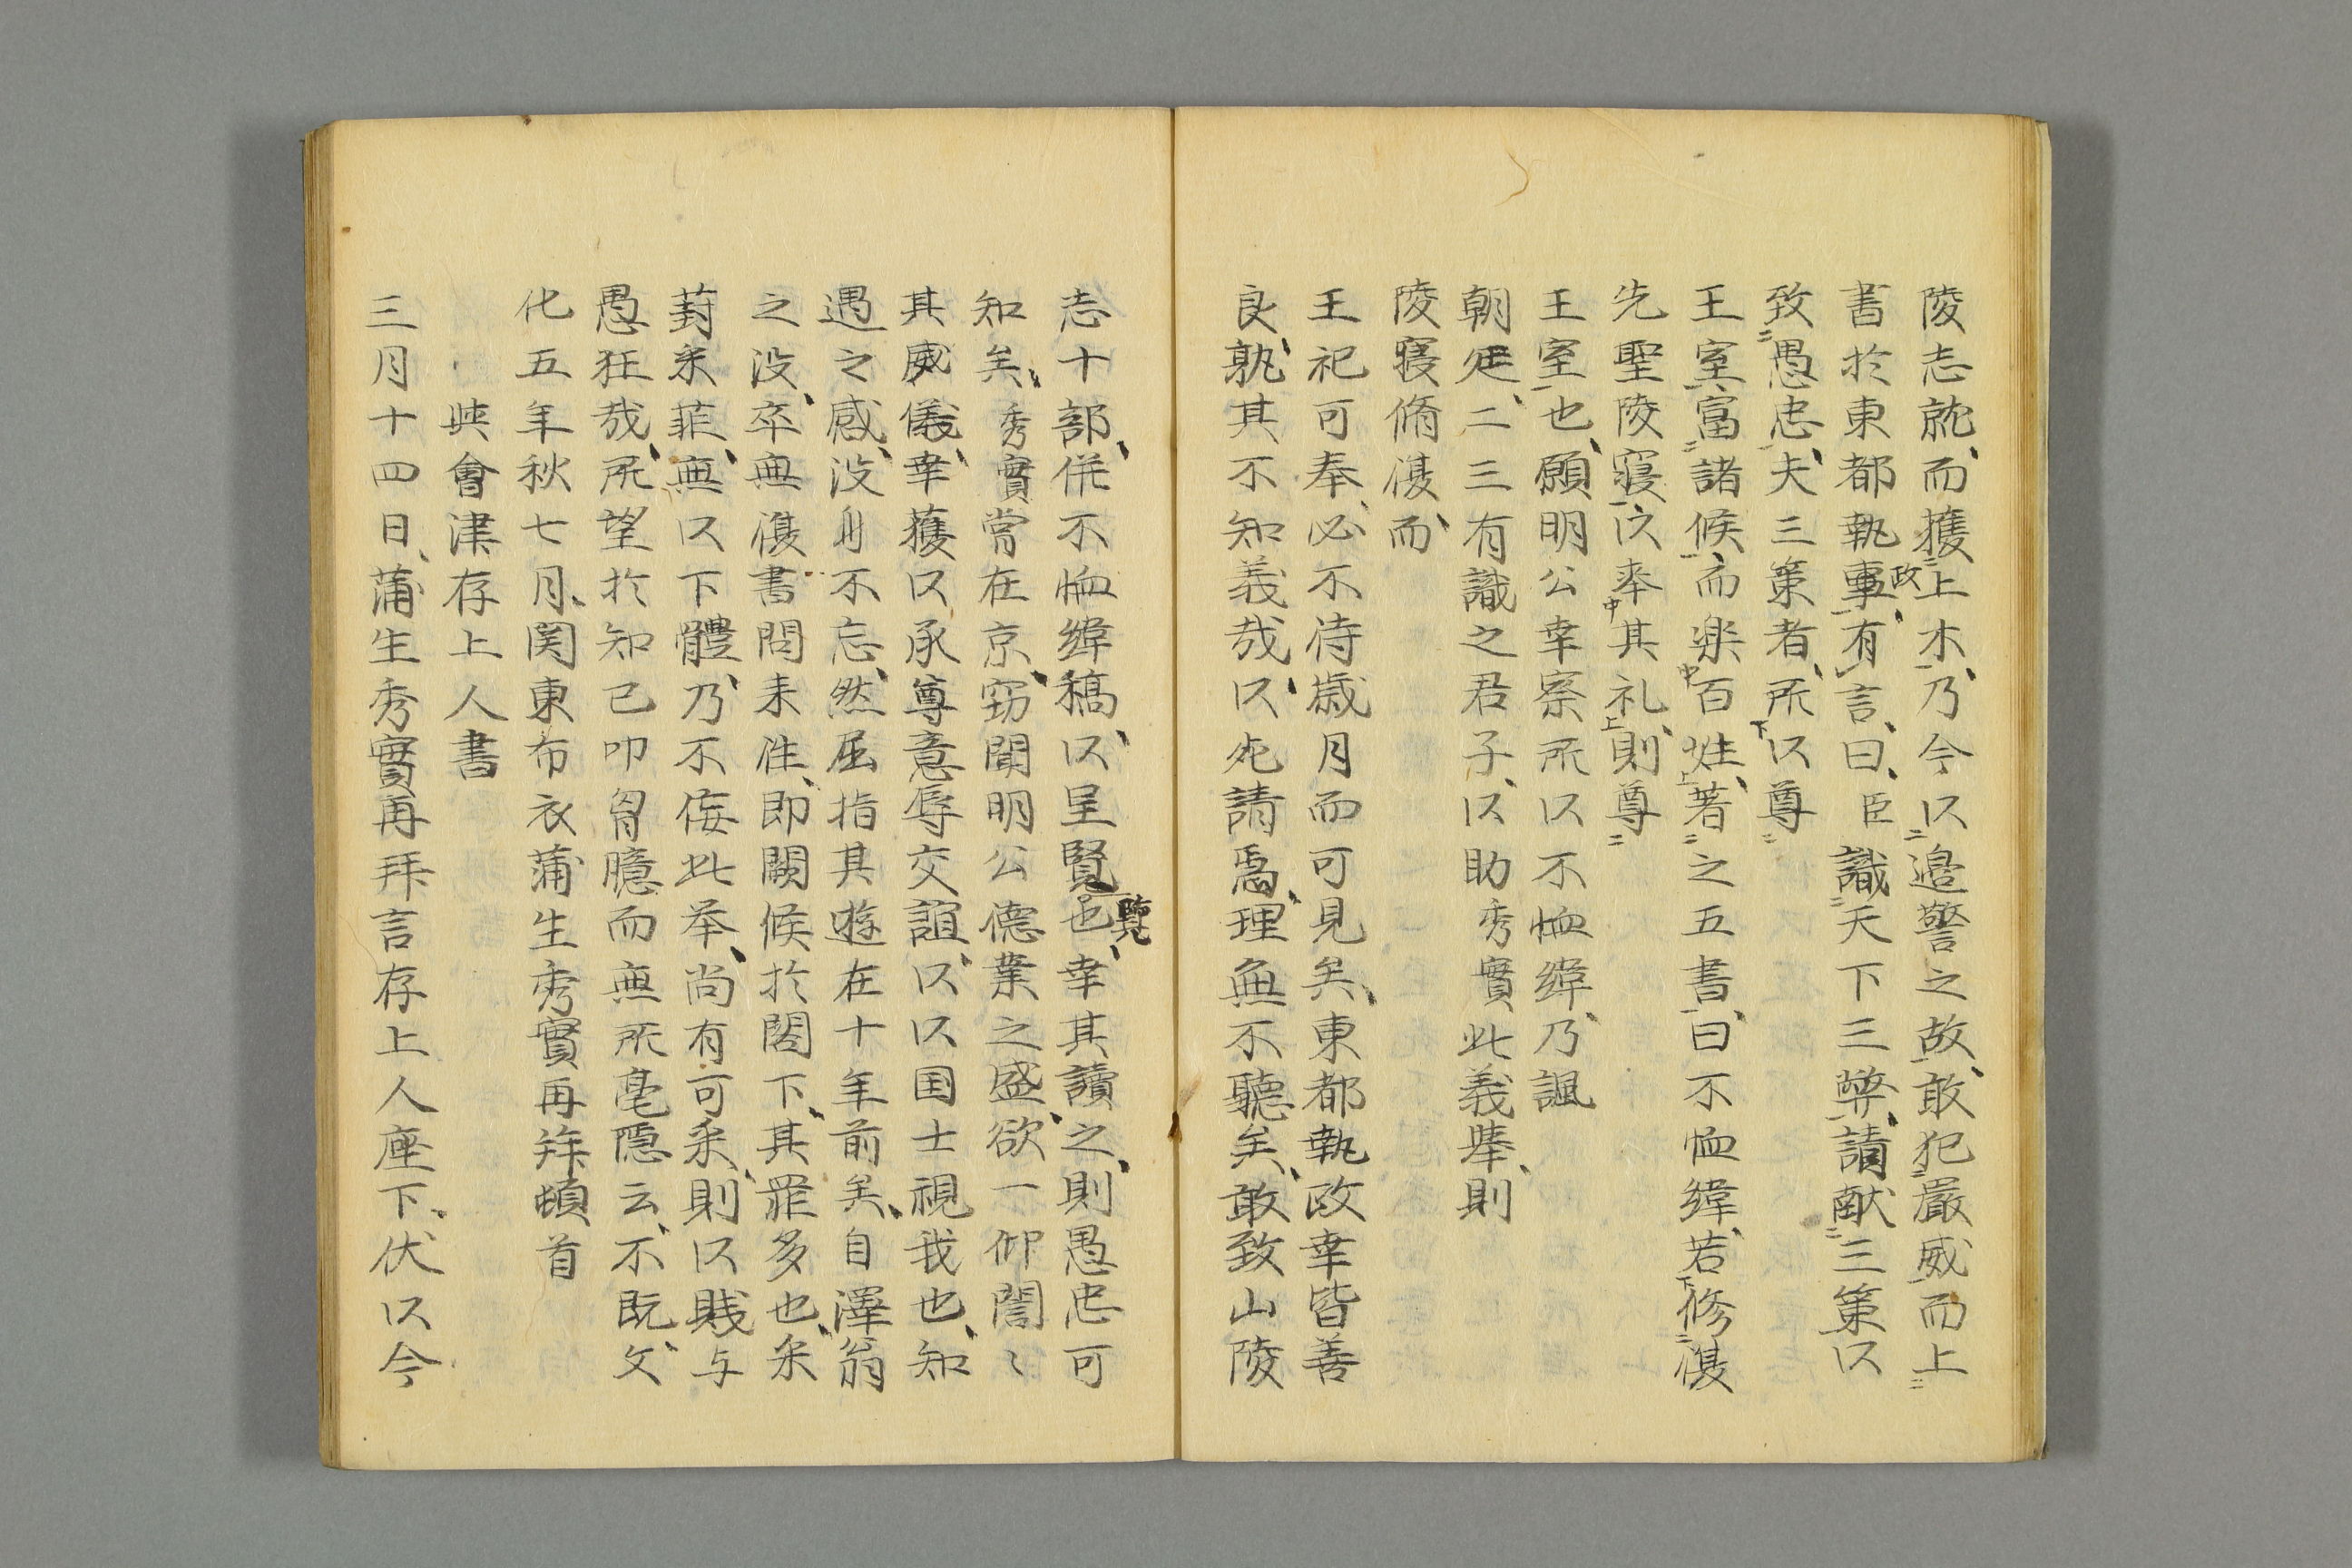 陵志就、而獲上木、乃今以邉警之故、敢犯嚴威而上
書於東都執事政、有言、曰、臣識天下三弊、請献三策以
致愚忠、夫三策者、所以尊
王室、富諸候、而楽百姓、著之五書、曰不恤緯、若修復
先聖陵寝、以奉其礼、則尊
王室也、願明公幸察所以不恤緯、乃諷
朝廷、二三有識之君子、以助秀實此義挙、則
陵寝脩復、而
王祀可奉、必不待歳月而可見矣、東都執政幸皆善
良、孰其不知義哉、以死請焉、理無不聽矣、敢致山陵
志十部、併不恤緯稿、以呈賢覽也、幸其讀之、則愚忠可
知矣、秀實嘗在京、窃聞明公德業之盛、欲一仰誾〻
其威儀、幸獲以承尊意辱交誼、以以国士視我也、知
遇之感、没身不忘、然屈指其遊在十年前矣、自澤翁
之没、卒無復書問来往、即闕候於閣下、其罪多也、采
葑采菲、無以下體、乃不侮此举、尚有可采、則以賎与
愚狂哉、所望於知己叩胷臆而無所毫隠云、不既、文
化五年秋七月、関東布衣蒲生秀實再拜頓首
與會津存上人書
三月十四日、蒲生秀實再拜言存上人座下、伏以今